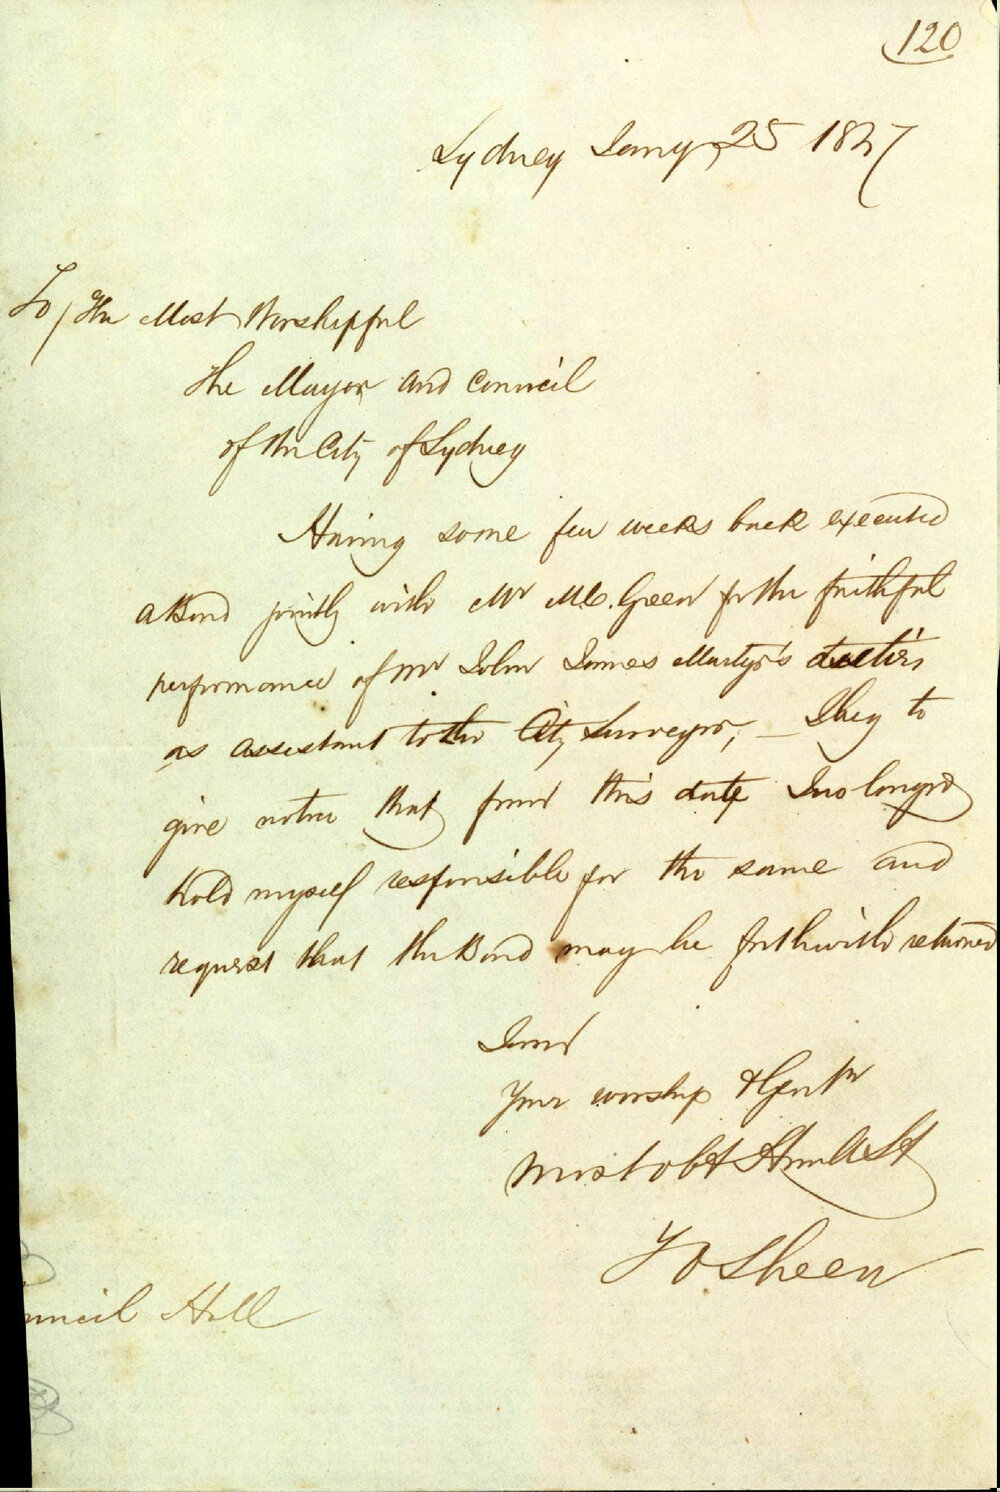 120
Sydney Jany 25 1847
To / The Most Worshipful
The Mayor and Council
of the City of Sydney
Having some few weeks back executed
a Bond jointly with Mr Green for the faithful
performance of Mr John James Martyr's duties
as assistant to the City Surveyor, — I beg to
give notice that from this date I no longer
hold myself responsible for the same and
request that the Bond may be forthwith returned
I am
Your worship & Gentn
Most obt Humble St
Sheen
uncil Hall